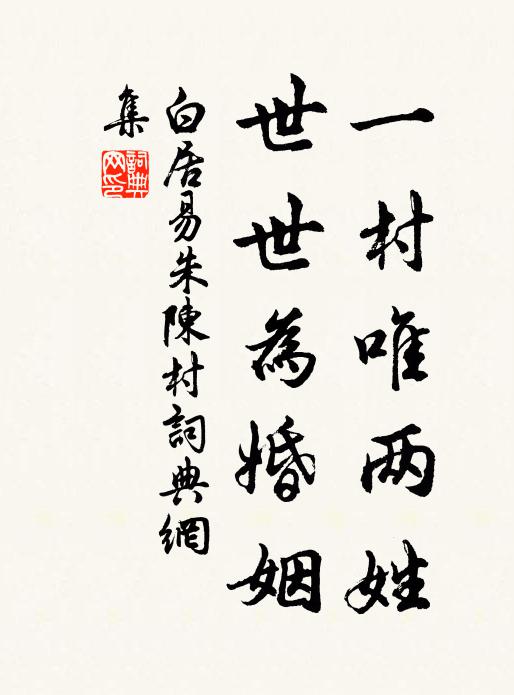 一村唯两姓
世世為婚姻
白居易朱陳村詞典網
集
詞典
网印